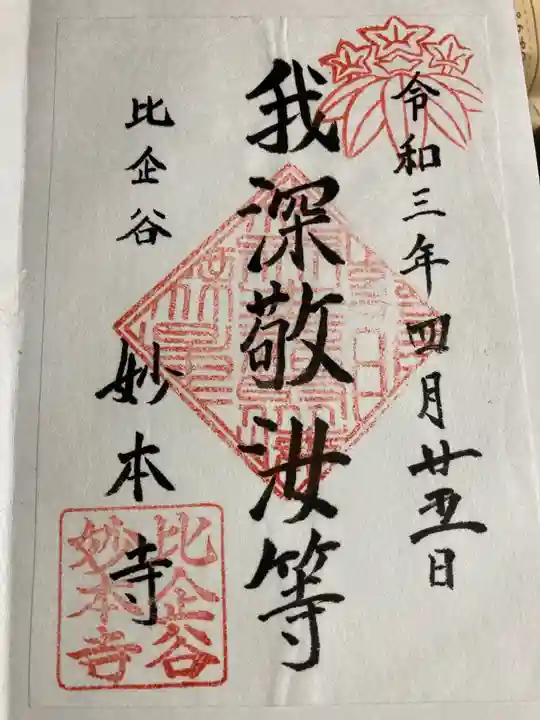 令和三年四月廿五日
我深敬汝等
比企谷
妙本寺
比企谷
妙本寺